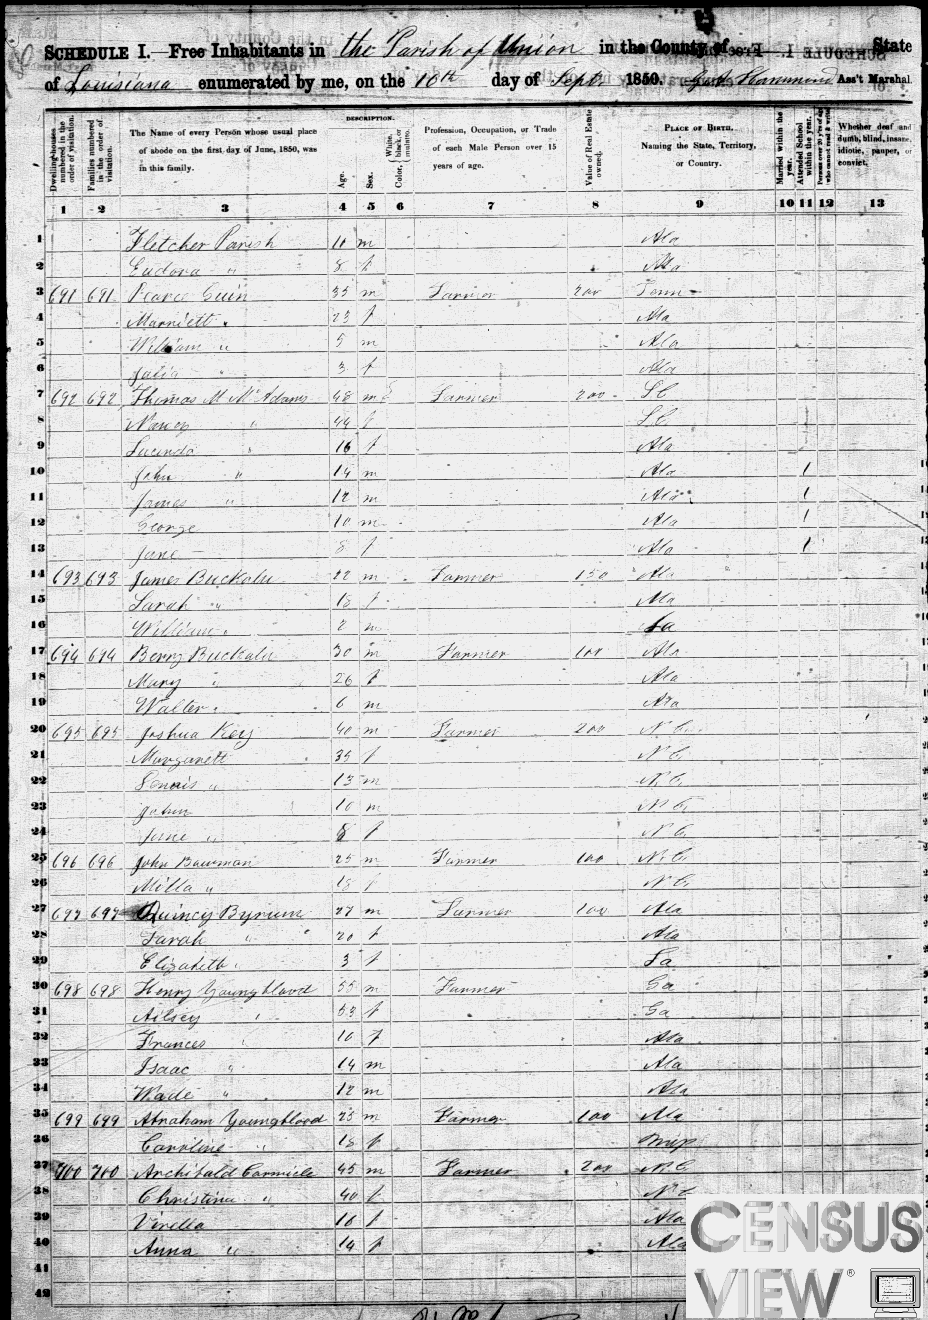 SCHEDULE I.—Free Inhabitants in the Parish of Union in the County of State
of Louisiana enumerated by me, on the 10th day of Sept. 1850. Ass't Marshal.
DESCRIPTION.
Dwelling-houses numbered in the order of visitation.
Families numbered in the order of visitation.
The Name of every Person whose usual place of abode on the first day of June, 1850, was in this family.
Age.
Sex.
Color, { White, black, or mulatto.
Profession, Occupation, or Trade of each Male Person over 15 years of age.
Value of Real Estate owned.
PLACE OF BIRTH. Naming the State, Territory, or Country.
Married within the year.
Attended School within the year.
Persons over 20 y'rs of age who cannot read & write.
Whether deaf and dumb, blind, insane, idiotic, pauper, or convict.
1 2 3 4 5 6 7 8 9 10 11 12 13
1 Fletcher Parish 10 m Ala
2 Eudora " 8 f Ala
3 691 691 Pearce Guin 35 m Farmer 200 Tenn
4 Marriett " 23 f Ala
5 William " 5 m Ala
6 Julia " 3 f Ala
7 692 692 Thomas M McAdams 48 m Farmer 200 S C
8 Nancy " 44 f S C
9 Lucinda " 16 f Ala
10 John " 14 m Ala 1
11 James " 12 m Ala 1
12 George 10 m Ala 1
13 Jane 8 f Ala 1
14 693 693 James Buckalu 22 m Farmer 150 Ala
15 Sarah " 18 f Ala
16 William " 2 m La
17 694 694 Berry Buckalu 30 m Farmer 100 Ala
18 Mary " 26 f Ala
19 Walter " 6 m Ala
20 695 695 Joshua Key 40 m Farmer 200 N C
21 Margarett 35 f N C
22 " 13 m N C
23 John 10 m N C
24 Jane " 8 f N C
25 696 696 John Bowman 25 m Farmer 100 N C
26 Milla " 18 f N C
27 697 697 Quincy Byrum 27 m Farmer 100 Ala
28 Sarah " 20 f Ala
29 Elizabeth " 3 f La
30 698 698 Henry Youngblood 55 m Farmer Ga
31 Ailsey " 53 f Ga
32 Frances " 16 f Ala
33 Isaac " 14 m Ala
34 Wade " 12 m Ala
35 699 699 Abraham Youngblood 25 m Farmer 100 Ala
36 Caroline " 18 f Miss
37 700 700 Archibald Carmicle 45 m Farmer 200 N C
38 Christina " 40 f N C
39 Virella 16 f Ala
40 Anna " 14 f Ala
41
42
CENSUS
VIEW®